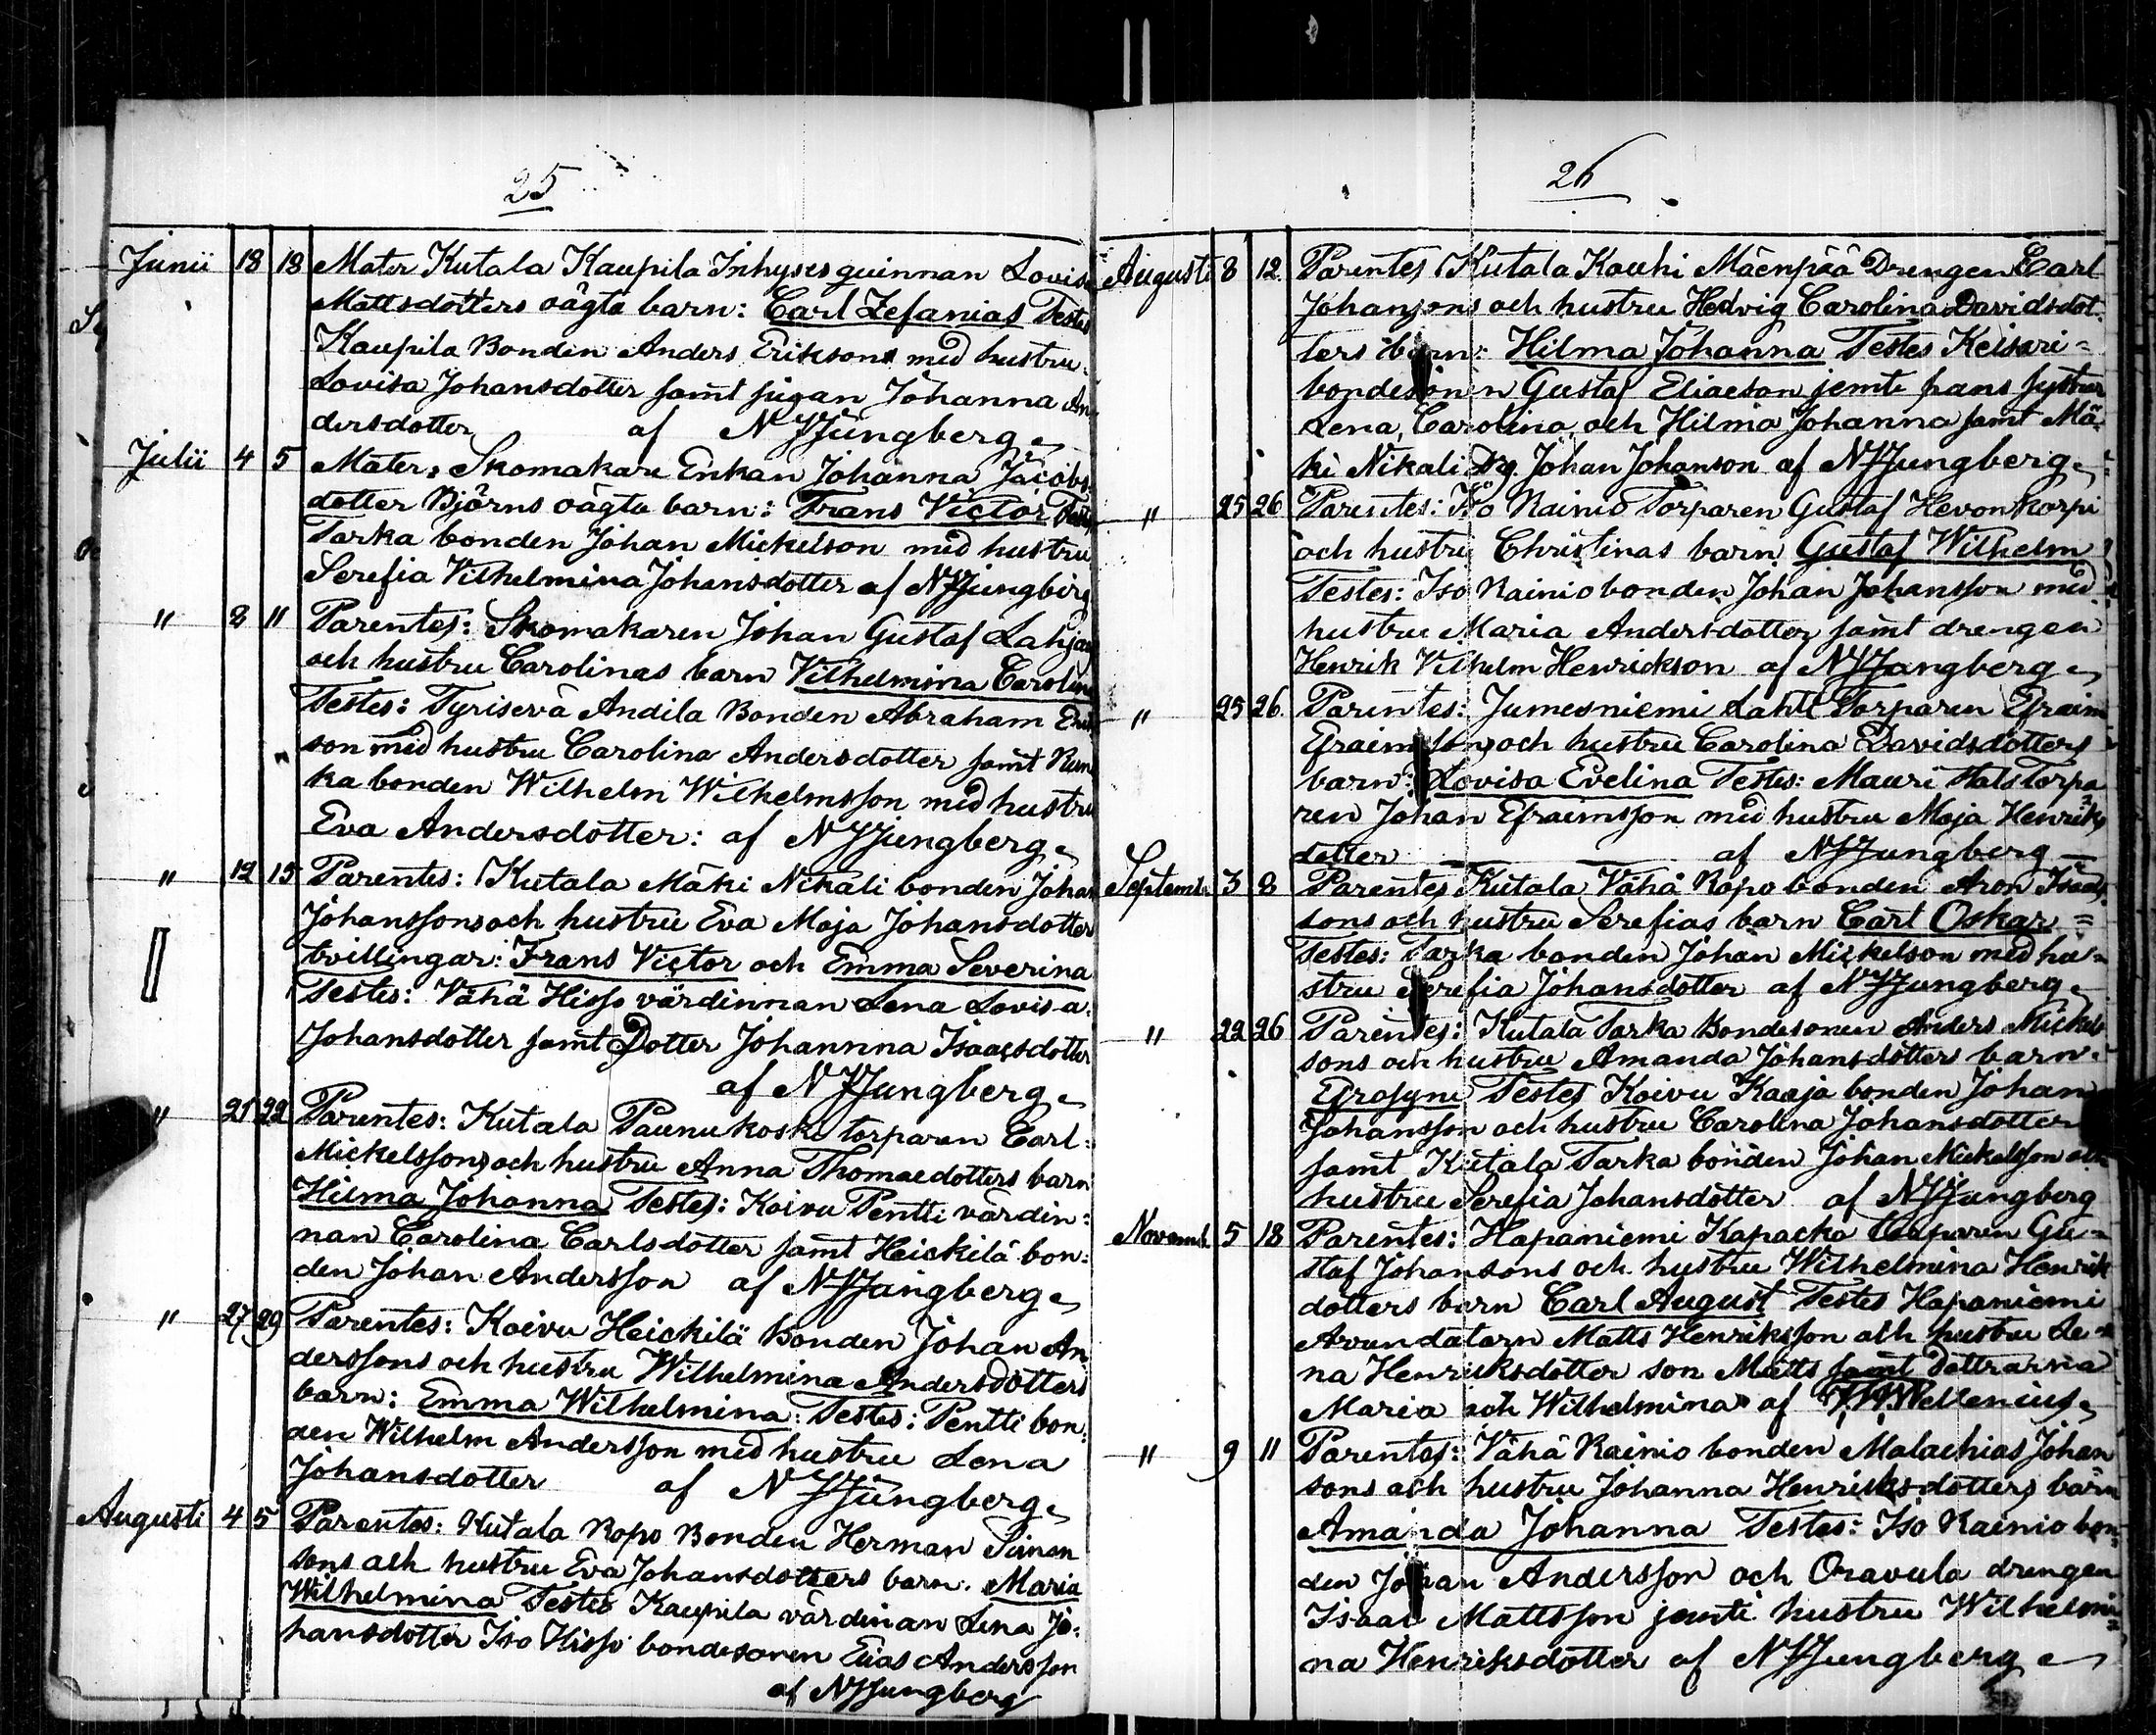 25
Junii 18 18 Mater Kutala Kaupila Inhyses quinnan Lovisa
Mattsdotters oägta barn: Carl Zefanias Testes
Kaupila Bonden Anders Eriksons med hustru
Lovisa Johansdotter samt pigan Johanna An
dersdotter af N Ljungberg
Julii 4 5 Mater, Skomakare Enkan Johanna Jacobs
dotter Björns oägta barn: Frans Victor Testes
Tarka bonden Johan Mickelson med hustru
Serefia Vilhelmina Johansdotter af N Ljungberg
" 8 11 Parentes: Skomakaren Johan Gustaf
och hustru Carolinas barn Vilhelmina Carolina
Testes: Tyrisevä Andila Bonden Abraham
son med hustru Carolina Andersdotter samt
ka bonden Wilhelm Wilhelmsson med hustru
Eva Andersdotter: af N Ljungberg
" 12 15 Parentes: Kutala Mäki Nikali bonden Johan
Johanssons och hustru Eva Maja Johansdotter
tvillingar: Frans Victor och Emma Severina
Testes: Vähä Hisso värdinnan Lena Lovisa
Johansdotter samt Dotter Johannna Isaacsdotter
af N Ljungberg
" 21 22 Parentes: Kutala Paunukoski torparen Carl
Mickelssons och hustru Anna Thomaedotters barn
Hilma Johanna Testes: Koivu Pentti värdin:
nan Carolina Carlsdotter samt Heickilä bon:
den Johan Andersson af N Ljungberg
" 27 29 Parentes: Koivu Heickilä Bonden Johan An
derssons och hustru Wilhelmina Andersdotters
barn: Emma Wilhelmina: Testes: Pentti bon:
den Wilhelm Andersson med hustru Lena
Johansdotter af N Ljungberg
Augusti 4 5 Parentes: Kutala Ropo Bonden Herman Simon
sons och hustru Eva Johansdotters barn. Maria
Wilhelmina Testes Kaupila värdinan Lena Jo:
hansdotter Iso Hisso bondesonen Elias Andersson
af N Ljungberg
26
Augusti 8 12. Parentes Kutala Kouhi Mäenpää Drengen Carl
Johansons och hustru Hedvig Carolina Davidsdot.
ters barn: Hilma Johanna Testes Keisari=
bondesonen Gustaf Eliaeson jemte hans systrar
Lena, Carolina, och Hilma Johanna samt Mä:
ki Nikali Dg. Johan Johanson af N Ljungberg
" 25 26 Parentes: Iso Rainio Torparen Gustaf Hevonkorpi
och hustru Christinas barn Gustaf Wilhelm
Testes: Iso Rainio bonden Johan Johansson med
hustru Maria Andersdotter samt drengen
Henrik Vilhelm Henrickson af N Ljungberg
" 25 26. Parentes: Jumesniemi Lahti Torparen Efraim
Efraimssons och hustru Carolina Davidsdotters
barn: Lovisa Evelina Testes: Mauri Torpa
ren Johan Efraimsson med hustru Maja Henriks
dotter af N Ljungberg
Septemb. 3 8 Parentes Kutala Vähä Ropo bonden Aron Isaac
sons och hustru Serefias barn Carl Oskar =
Testes: Tarka bonden Johan Mickelson med hu=
stru Serefia Johansdotter af N Ljungberg
" 22 26 Parentes: Kutala Tarka Bondesonen Anders Mickel
sons och hustru Amanda Johansdotters barn.
Efrosyne Testes Koivu Kaaja bonden Johan
Johansson och hustru Carolina Johansdotter
samt Kutala Tarka bonden Johan Mickelsson och
hustru Serefia Johansdotter af N Ljungberg
Novemb. 5 18 Parentes: Hapaniemi Torparen Gu=
staf Johansons och hustru Wilhelmina Henrik
dotters barn Carl August Testes Hapaniemi
Arrendatorn Matts Henriksson och hustru Le=
na Henriksdotter son Matts samt dottrarna
Maria och Wilhelmina af Wellenius
" 9 11 Parentes: Vähä Rainio bonden Malachias Johan
sons och hustru Johanna Henriksdotters barn
Amanda Johanna Testes: Iso Rainio bon=
den Johan Andersson och Oravula drengen
Isaac Mattsson jemte hustru Wilhelmi=
na Henriksdotter af N Ljungberg